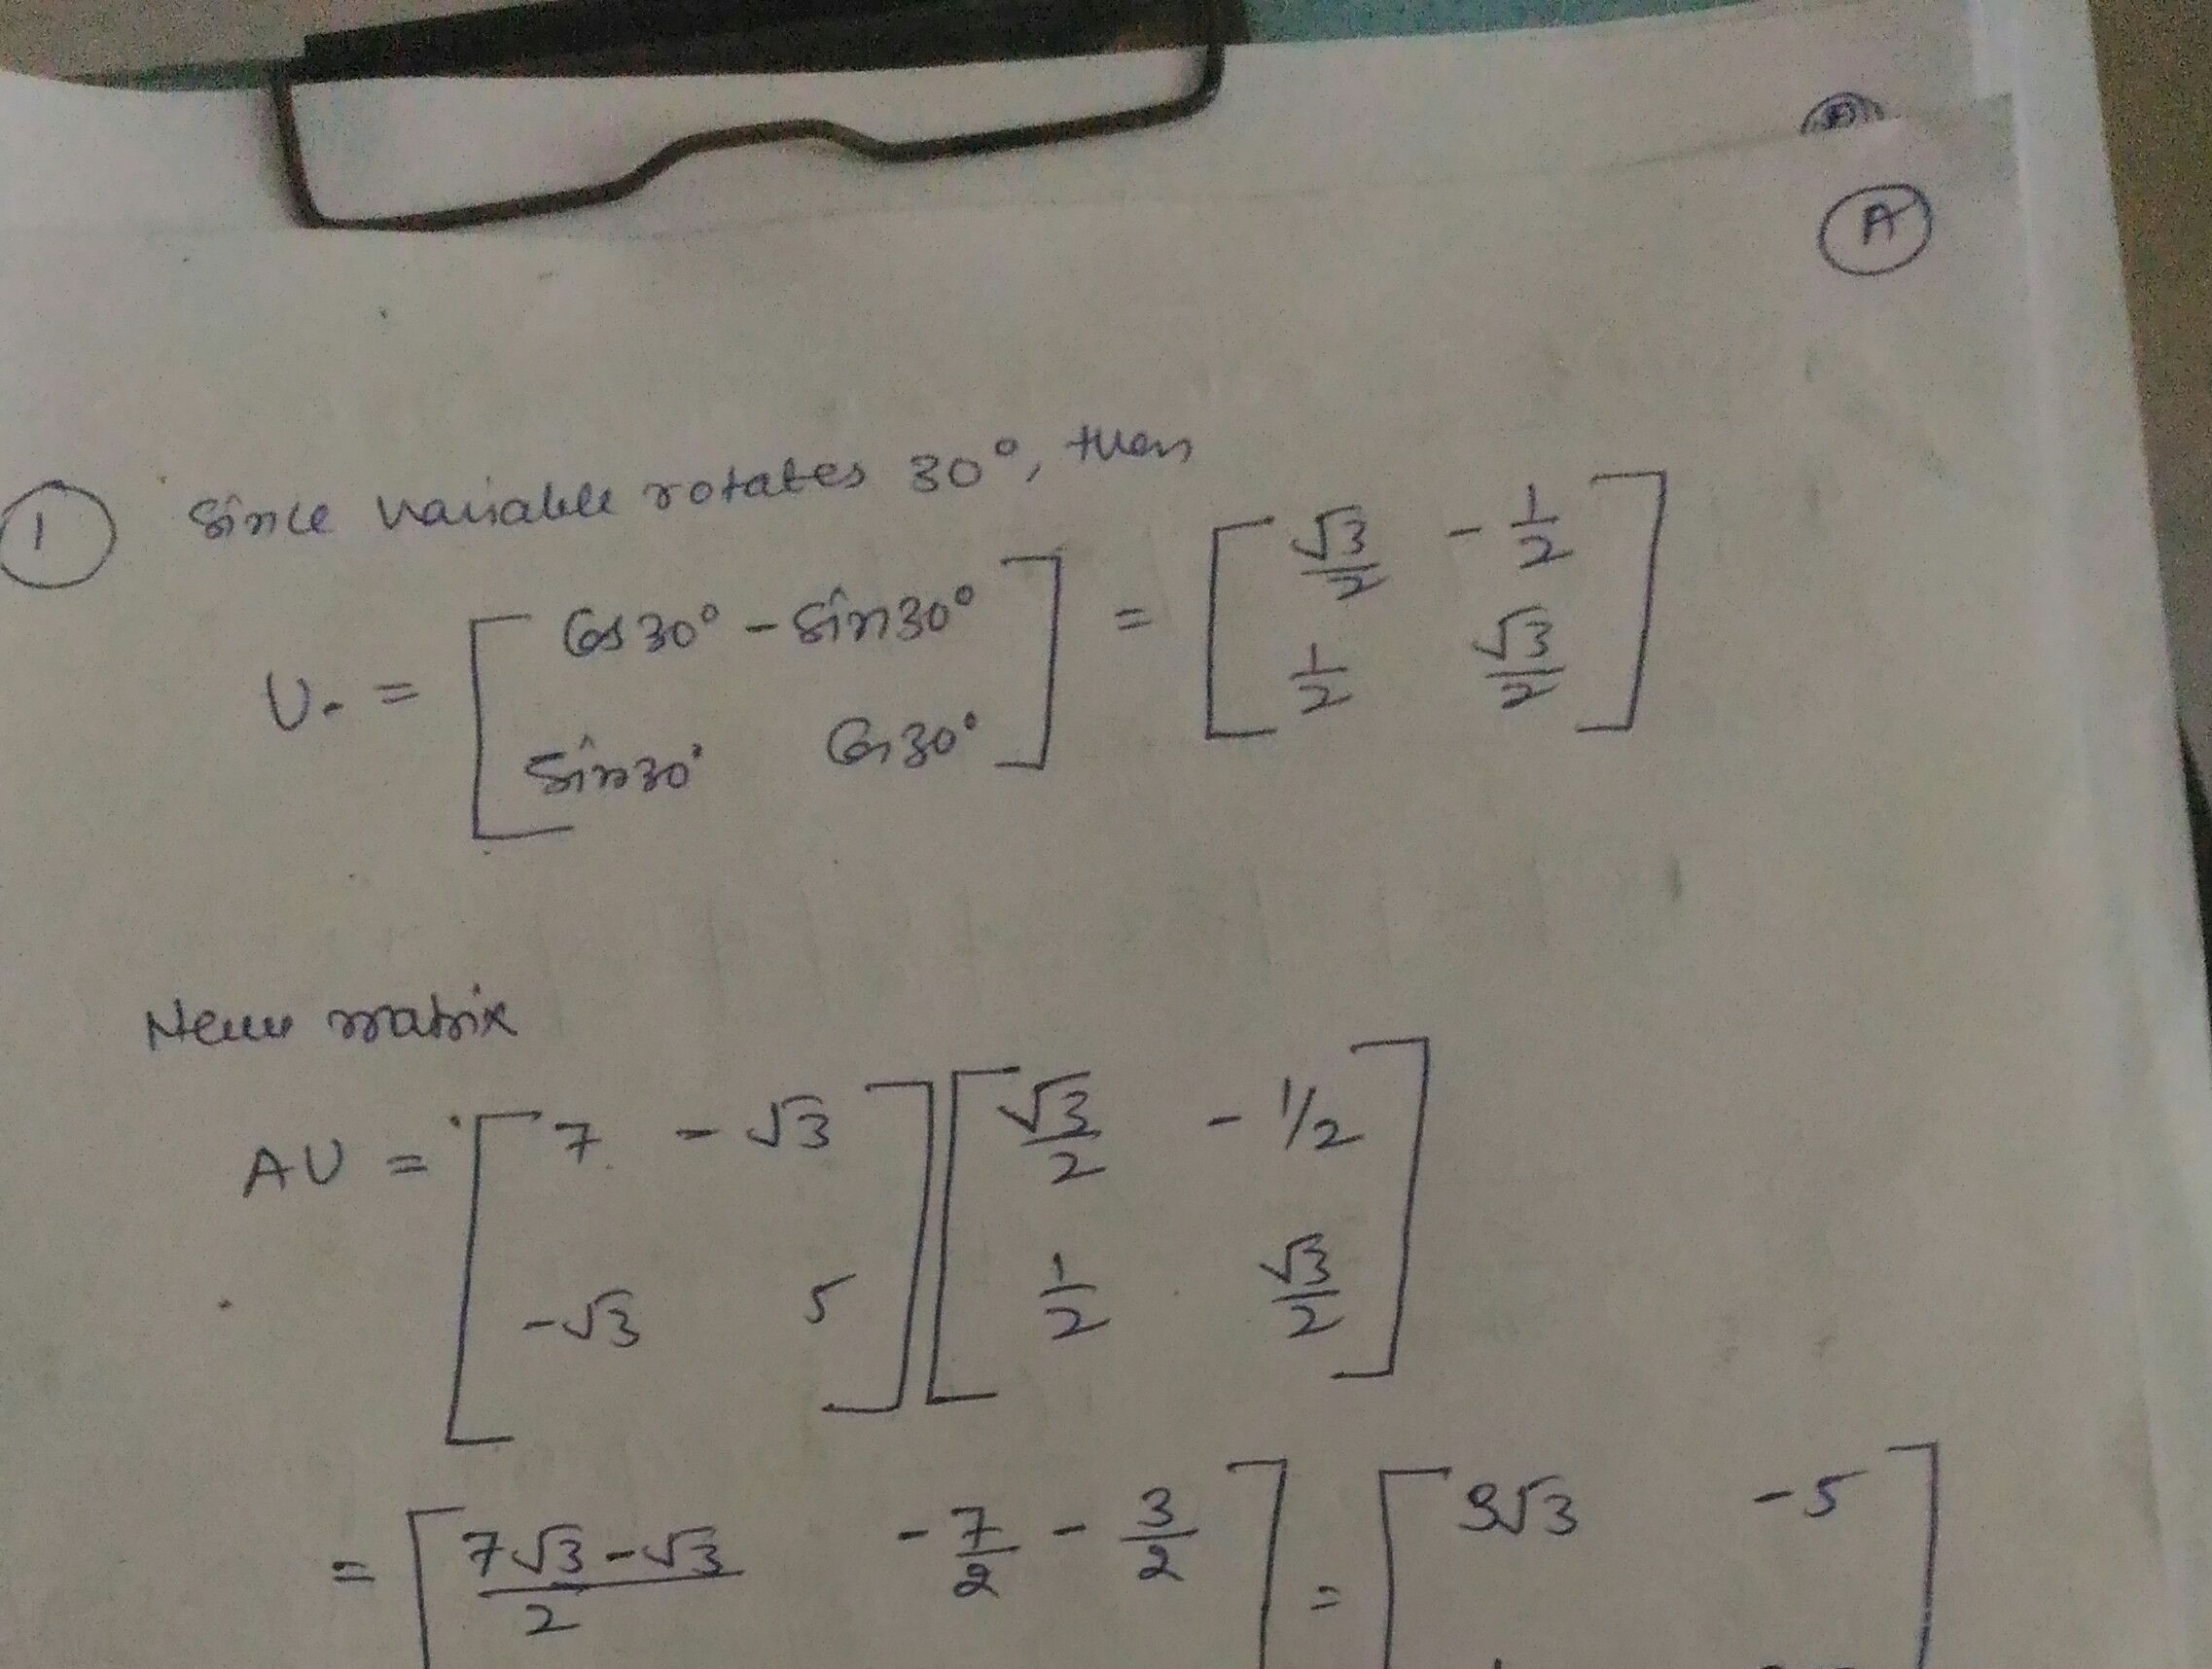 A
1 Since variable rotates 30°, then
U. = [ Cos 30° - Sin 30° ] = [ √3/2 - 1/2 ]
[ Sin 30° Cos 30° ] [ 1/2 √3/2 ]
New matrix
AU = [ 7 - √3 ] [ √3/2 - 1/2 ]
[ -√3 5 ] [ 1/2 √3/2 ]
= [ 7√3-√3/2 - 7/2 - 3/2 ] = [ 3√3 - 5 ]